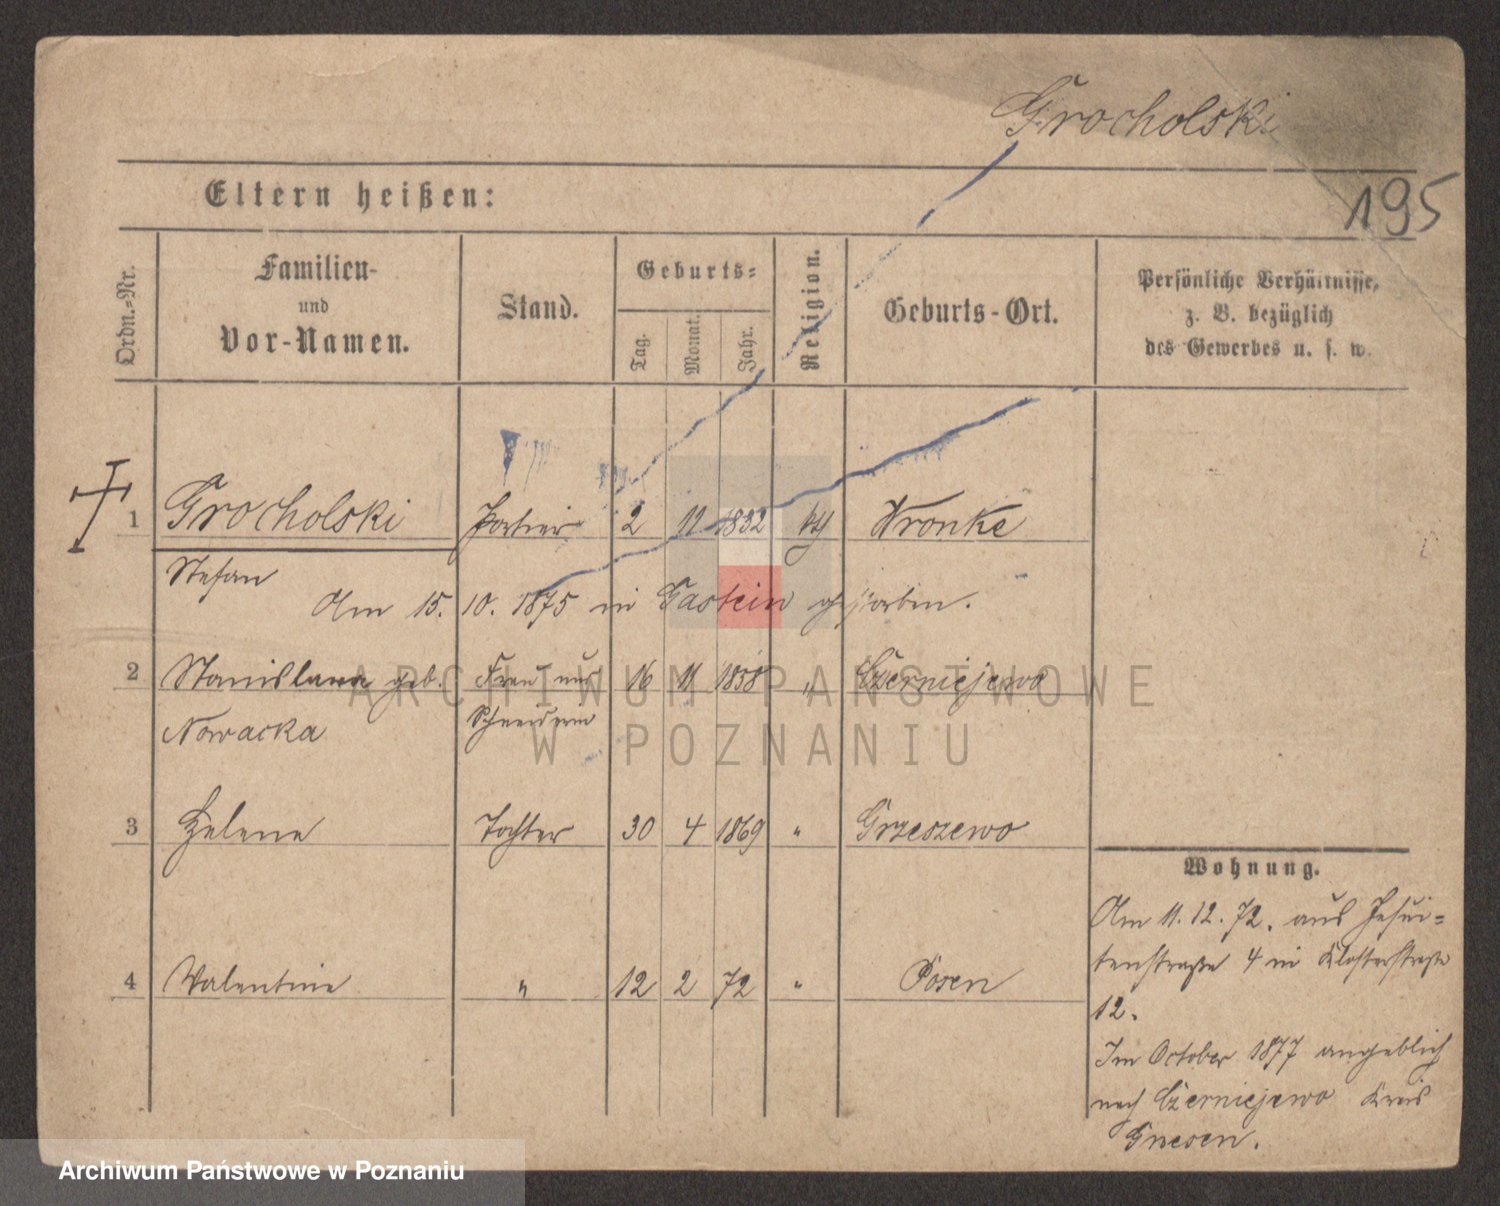 Grocholski
195
Eltern heißen:
Ordn.-Nr.
Familien-
und
Vor-Namen.
Stand.
Geburts-
Tag.
Monat.
Jahr.
Religion.
Geburts-Ort.
Persönliche Verhältnisse,
z. B. bezüglich
des Gewerbes u. s. w.
1 Grocholski Portier 2 12 1832 kth Wronke
Stefan
Am 15. 10. 1875 in Gastein gestorben.
2 Stanislawa geb. Frau und 16 11 1838 " Czerniejewo
Nowacka Schneiderin
3 Helene Tochter 30 4 1869 " Grzeszewo
4 Valentine " 12 2 72 " Posen
Wohnung.
Am 11. 12. 72. aus Jesui=
tenstraße 4 in Klosterstraße
12.
Im October 1877 angeblich
nach Czerniejewo Kreis
Gnesen.
ARCHIWUM PAŃSTWOWE
W POZNANIU
Archiwum Państwowe w Poznaniu